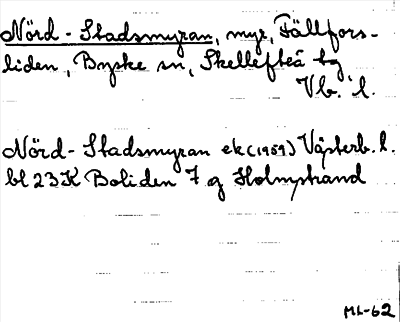 Nörd-Stadsmyran, myr, Fällfors-
liden, Byske sn, Skellefteå tg
Vb. l.
Nörd-Stadsmyran ek (1959) Västerb. l.
bl 23K Boliden 7 g Holmstrand
ML-62